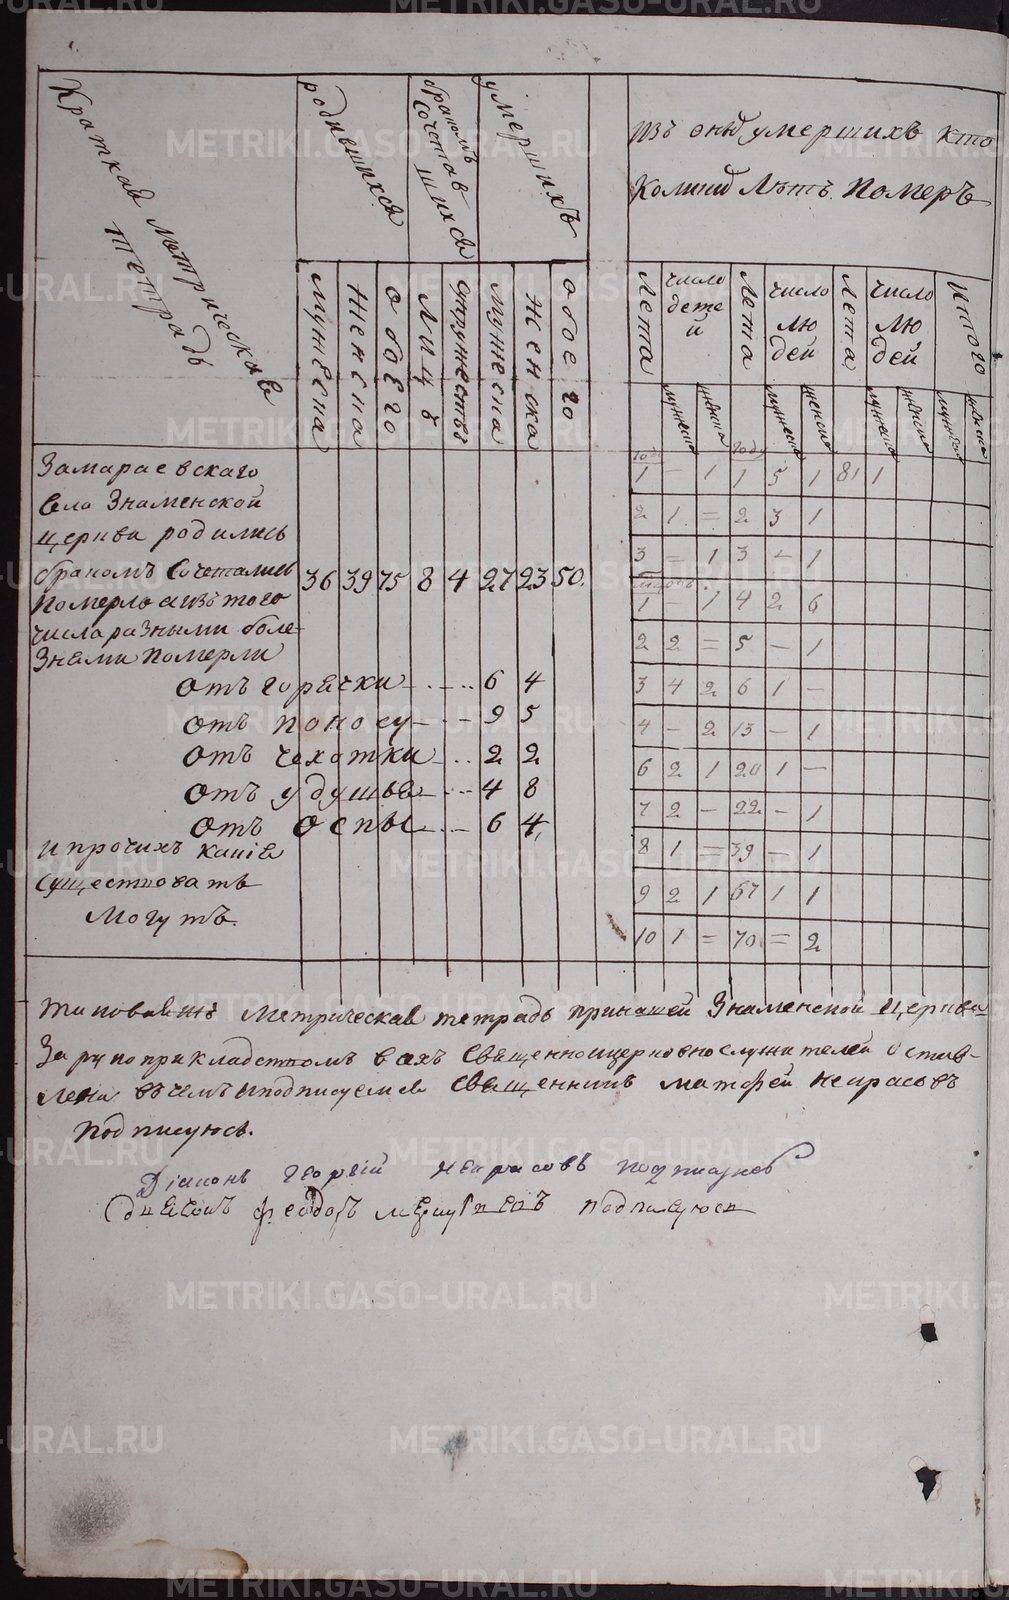 METRIKI.GASO-URAL.RU
Краткая метрическая
тетрадь
родившихся
бракомъ
сочетав
шихся
умершихъ
изъ оныхъ умершихъ кто
Коликихъ Лѣтъ Померъ
мужеска
Женска
обоего
Лицъ
супружествъ
мужеска
Женска
обоего
Лета
число
дете
й
Лета
число
лю
дей
Лета
число
лю
дей
Итого
мужеска
женска
мужеска
женска
мужеска
женска
мужеска
женска
Замараевскаго
села Знаменской
церкви родились
бракомъ Сочетались 36 39 75 8 4 27 23 50.
Померло а изъ того
числа разными боле-
Знями Померли
отъ горячки 6 4
отъ поносу 9 5
отъ чахотки 2 2
отъ удушья 4 8
отъ оспы 6 4
и прочихъ какія
существовать
могутъ.
годъ годъ
1 1 1 5 1 81 1
2 1 = 2 3 1
3 = 1 3 – 1
1 – 1 4 2 6
2 2 = 5 – 1
3 4 2 6 1 –
4 – 2 13 – 1
6 2 1 20 1 –
7 2 – 22 – 1
8 1 = 39 – 1
9 2 1 67 1 1
10 1 = 70 = 2
Таковая Метрическая тетрадь при нашей Знаменской церкви
За рукоприкладствомъ всѣхъ Священноицерковнослужителей остав-
лена въ чемъ и подписуемся Священникъ матфей некрасовъ
Подписуюсь.
Діаконъ Георгій некрасовъ подписуюсь
Дьячокъ феодоръ подписуюсь